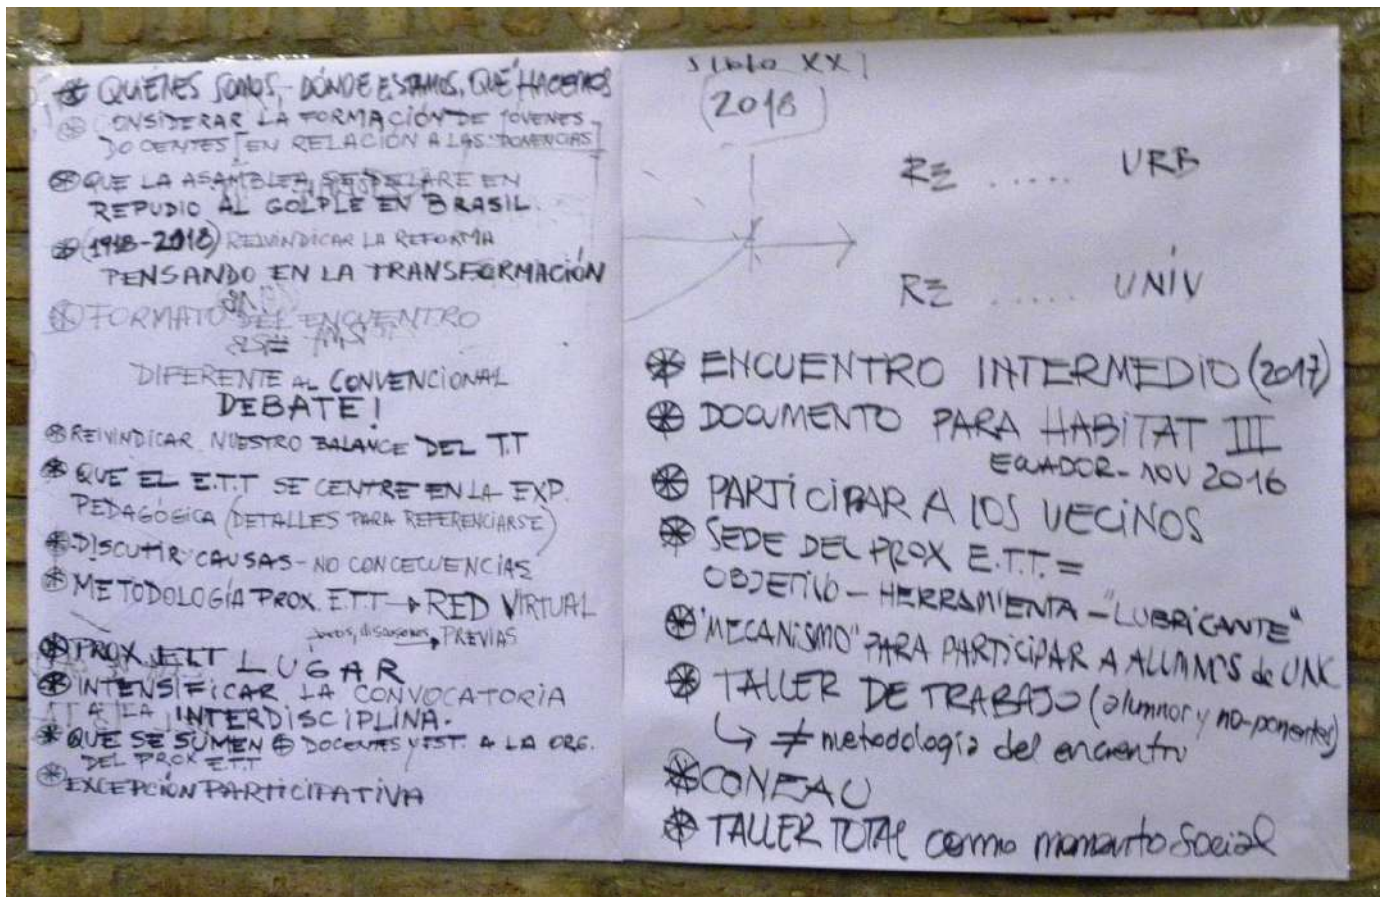 ⊛ QUIÉNES SOMOS, - DÓNDE ESTAMOS, QUÉ HACEMOS
⊛ CONSIDERAR LA FORMACIÓN DE JÓVENES
DOCENTES [EN RELACIÓN A LAS PONENCIAS]
⊛ QUE LA ASAMBLEA SE DECLARE EN
REPUDIO AL GOLPLE EN BRASIL.
⊛ (1918-2018) REIVINDICAR LA REFORMA
PENSANDO EN LA TRANSFORMACIÓN
⊛ FORMATO DEL ENCUENTRO
DIFERENTE AL CONVENCIONAL
DEBATE!
⊛ REIVINDICAR NUESTRO BALANCE DEL T.T
⊛ QUE EL E.T.T SE CENTRE EN LA EXP.
PEDAGÓGICA (DETALLES PARA REFERENCIARSE)
⊛ DISCUTIR CAUSAS - NO CONCECUENCIAS
⊛ METODOLOGÍA PROX. E.T.T → RED VIRTUAL
PREVIAS
⊛ PROX ETT LUGAR
⊛ INTENSIFICAR LA CONVOCATORIA
A LA INTERDISCIPLINA.
⊛ QUE SE SUMEN ⊕ DOCENTES Y EST. A LA ORG.
DEL PROX ETT
⊛ EXCEPCIÓN PARTICIPATIVA
Siglo XXI
(2018)
RE ..... URB
RE ..... UNIV
⊛ ENCUENTRO INTERMEDIO (2017)
⊛ DOCUMENTO PARA HABITAT III
ECUADOR - NOV 2016
⊛ PARTICIPAR A LOS VECINOS
⊛ SEDE DEL PROX E.T.T. =
OBJETIVO - HERRAMIENTA - "LUBRICANTE"
⊛ "MECANISMO" PARA PARTICIPAR A ALUMNOS de UNC
⊛ TALLER DE TRABAJO (alumnos y no-ponentes)
↳ ≠ metodología del encuentro
⊛ CONEAU
⊛ TALLER TOTAL como momento Social